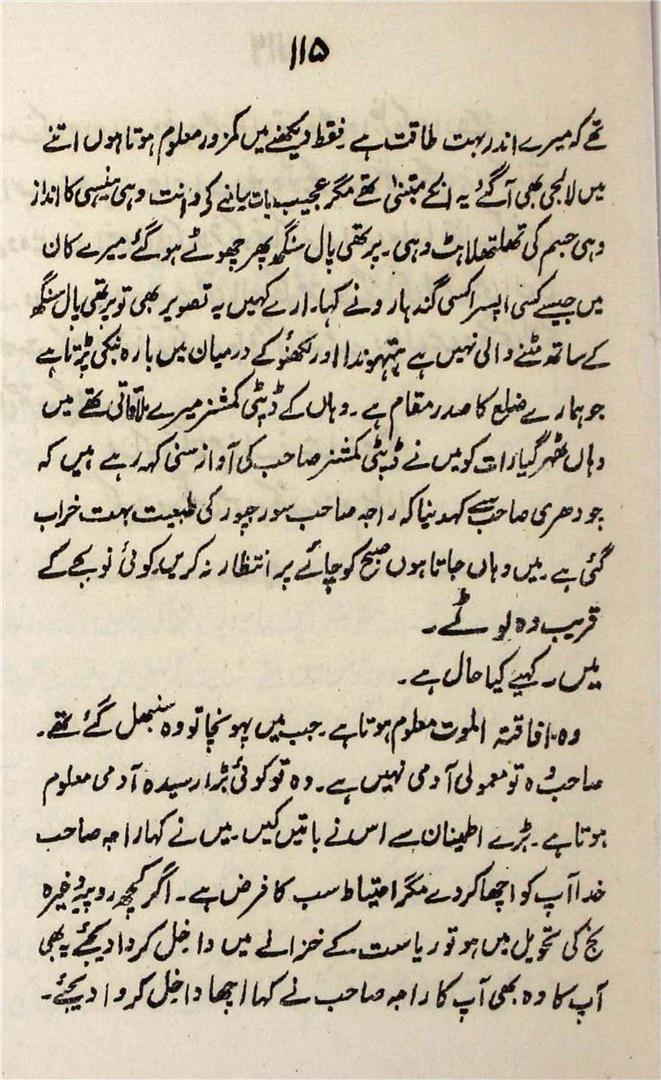 ۱۱۵
تھے کہ میرے اندر بہت طاقت ہے۔ فقط دیکھنے میں کمزور معلوم ہوتا ہوں اتنے
میں لالجی بھی آگئے یہ انکے متبنیٰ تھے مگر عجیب بات یانے کی دانت وہی ہنسی کا انداز
وہی جسم کی تھلتھلاہٹ وہی۔ پرتھی پال سنگھ پھر چھوٹے ہوگئے۔ میرے کان
میں جیسے کسی اپسرا کسی گندہارو نے کہا۔ ارے کہیں یہ تصویر بھی تو پرتھی پال سنگھ
کے ساتھ مٹنے والی نہیں ہے اور لکھنؤ کے درمیان میں بارہ بنکی پڑتا ہے
جو ہمارے ضلع کا صدر مقام ہے۔ وہاں کے ڈپٹی کمشنر میرے ملاقاتی تھے میں
وہاں ٹھہر گیا رات کو میں نے ڈپٹی کمشنر صاحب کی آواز سنی کہہ رہے ہیں کہ
چودھری صاحب سے کہدینا کہ راجہ صاحب سورجپور کی طبیعت بہت خراب
گئی ہے۔ میں وہاں جاتا ہوں صبح کو چائے پر انتظار نہ کریں۔ کوئی نو بجے کے
قریب وہ لوٹے۔
میں۔ کہیے کیا حال ہے۔
وہ۔ افاقتہ الموت معلوم ہوتا ہے۔ جب میں پہونچا تو وہ سنبھل گئے تھے۔
صاحب وہ تو معمولی آدمی نہیں ہے۔ وہ تو کوئی بڑا رسیدہ آدمی معلوم
ہوتا ہے۔ بڑے اطمینان سے اس نے باتیں کیں۔ میں نے کہا راجہ صاحب
خدا آپ کو اچھا کردے مگر احتیاط سب کا فرض ہے۔ اگر کچھ روپیہ وغیرہ
کج کی تحویل میں ہو تو ریاست کے خزانے میں داخل کروا دیجئے یہ بھی
آپ کا وہ بھی آپ کا راجہ صاحب نے کہا اچھا داخل کروا دیجئے۔